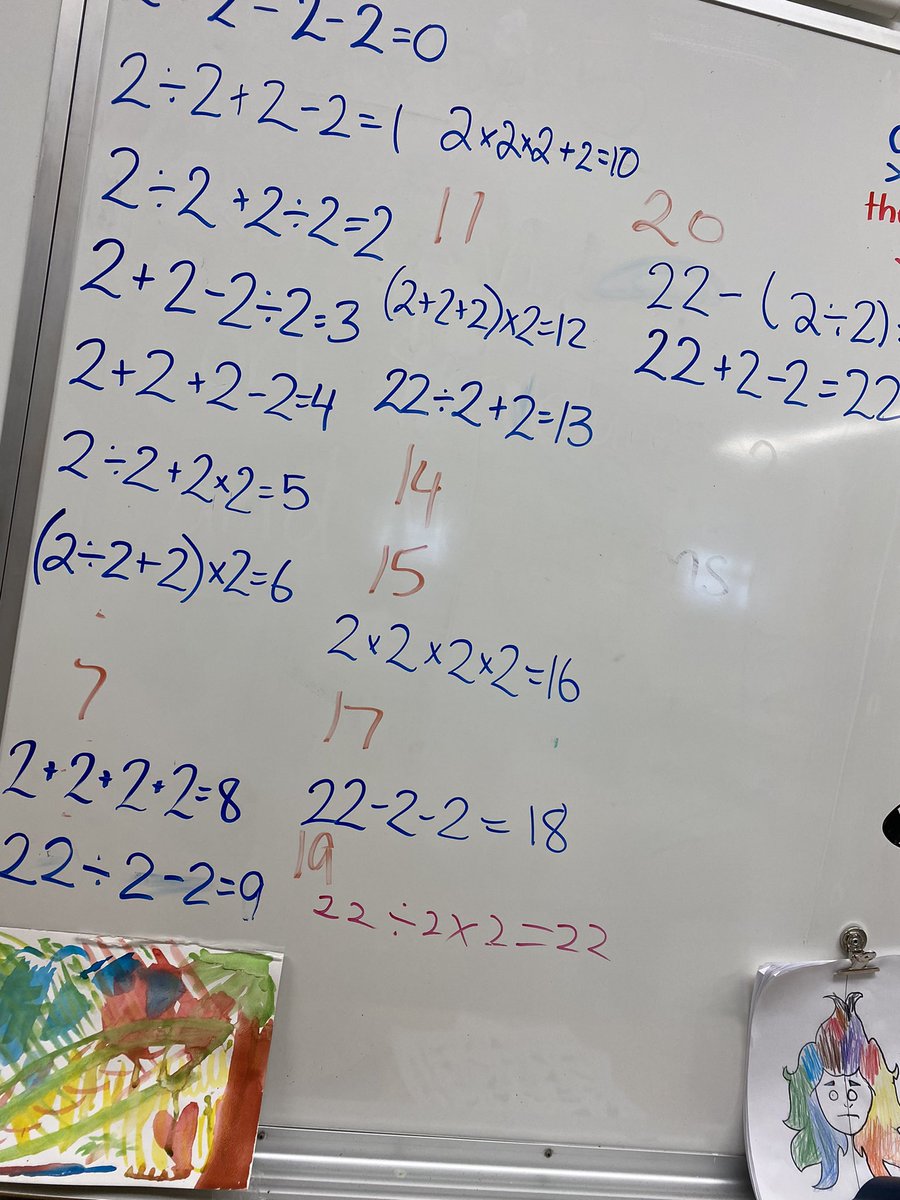 2-2-2=0
2÷2+2-2=1
2÷2+2÷2=2
2+2-2÷2=3
2+2+2-2=4
2÷2+2×2=5
(2÷2+2)×2=6
7
2+2+2+2=8
22÷2-2=9
2×2×2+2=10
11
(2+2+2)×2=12
22÷2+2=13
14
15
2×2×2×2=16
17
22-2-2=18
19
22÷2×2=22
20
22-(2÷2)=
22+2-2=22